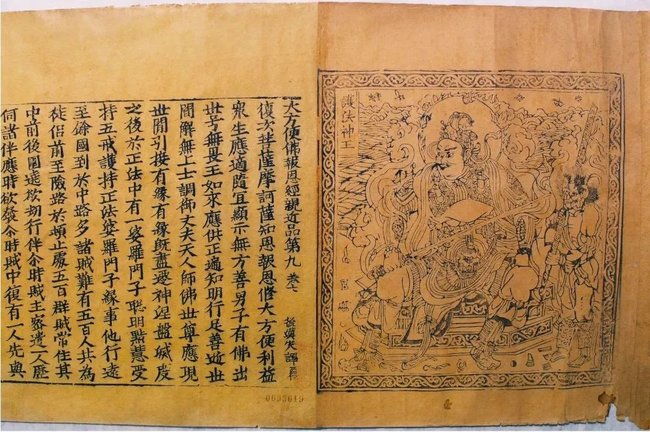 護法神王
大方便佛報恩經親近品第九
復次菩薩摩訶薩知恩報恩修大方便利益
衆生應適隨宜顯示無方善男子有佛出
世号無畏王如来應供正遍知明行足善逝世
間解無上士調御丈夫天人師佛世尊應現
世間引接有緣有緣既盡遷神涅盤滅度
之後於正法中有一婆羅門子聰明黠慧受
持五戒護持正法婆羅門子緣事他行遠
至餘國到於中路多諸賊難有五百人共為
徒侣前至險路於頓止處五百群賊常住其
中前後圍遶欲劫行伴尒時賊主密遣一人歷
伺諸伴應時欲發尒時賊中復有一人先與